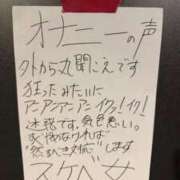 オナニーの声
外から丸聞こえです
狂ったみたいに
アンアンアンアンイクゥ!イク!
迷惑です。気色悪い。
やめなければ
"然るべき対応"します
スケベ女